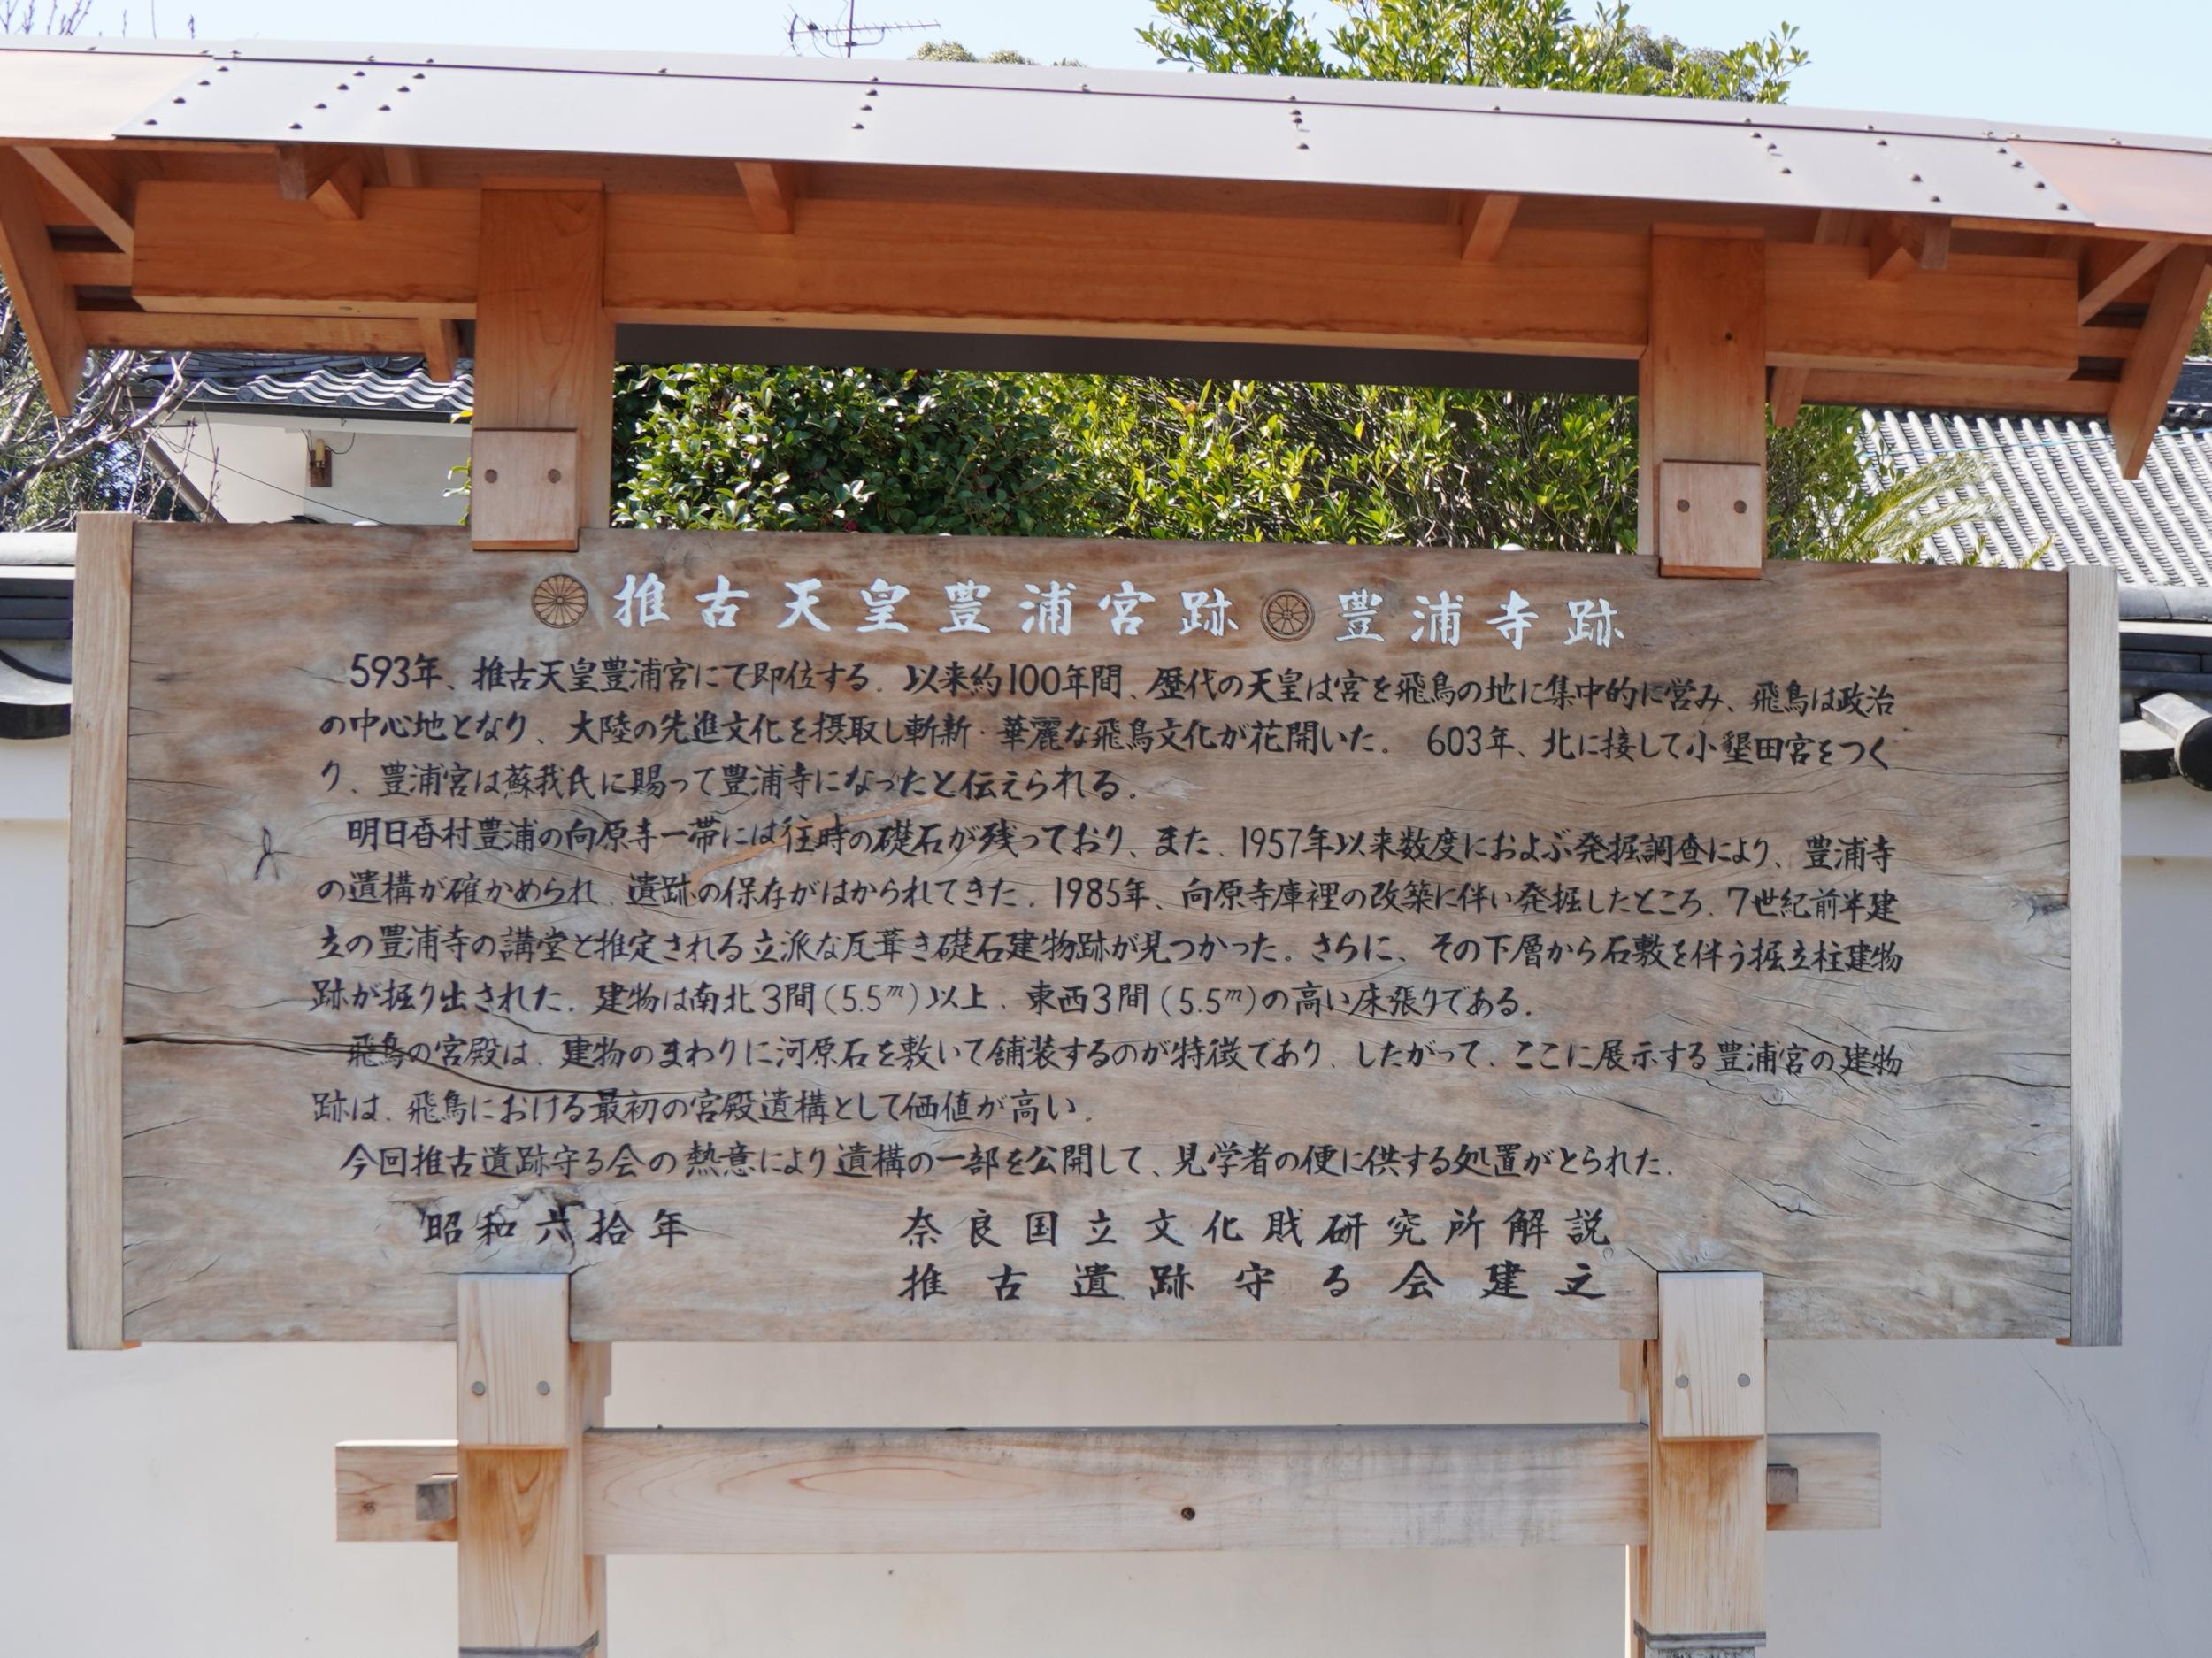 推古天皇豊浦宮跡 豊浦寺跡
593年、推古天皇豊浦宮にて即位する。以来約100年間、歴代の天皇は宮を飛鳥の地に集中的に営み、飛鳥は政治
の中心地となり、大陸の先進文化を摂取し斬新・華麗な飛鳥文化が花開いた。 603年、北に接して小墾田宮をつく
り、豊浦宮は蘇我氏に賜って豊浦寺になったと伝えられる。
明日香村豊浦の向原寺一帯には往時の礎石が残っており、また、1957年以来数度におよぶ発掘調査により、豊浦寺
の遺構が確かめられ、遺跡の保存がはかられてきた。1985年、向原寺庫裡の改築に伴い発掘したところ、7世紀前半建
立の豊浦寺の講堂と推定される立派な瓦葺き礎石建物跡が見つかった。さらに、その下層から石敷を伴う掘立柱建物
跡が掘り出された。建物は南北3間(5.5m)以上、東西3間(5.5m)の高い床張りである。
飛鳥の宮殿は、建物のまわりに河原石を敷いて舗装するのが特徴であり、したがって、ここに展示する豊浦宮の建物
跡は、飛鳥における最初の宮殿遺構として価値が高い。
今回推古遺跡守る会の熱意により遺構の一部を公開して、見学者の便に供する処置がとられた。
昭和六拾年 奈良国立文化財研究所解説
推古遺跡守る会建之